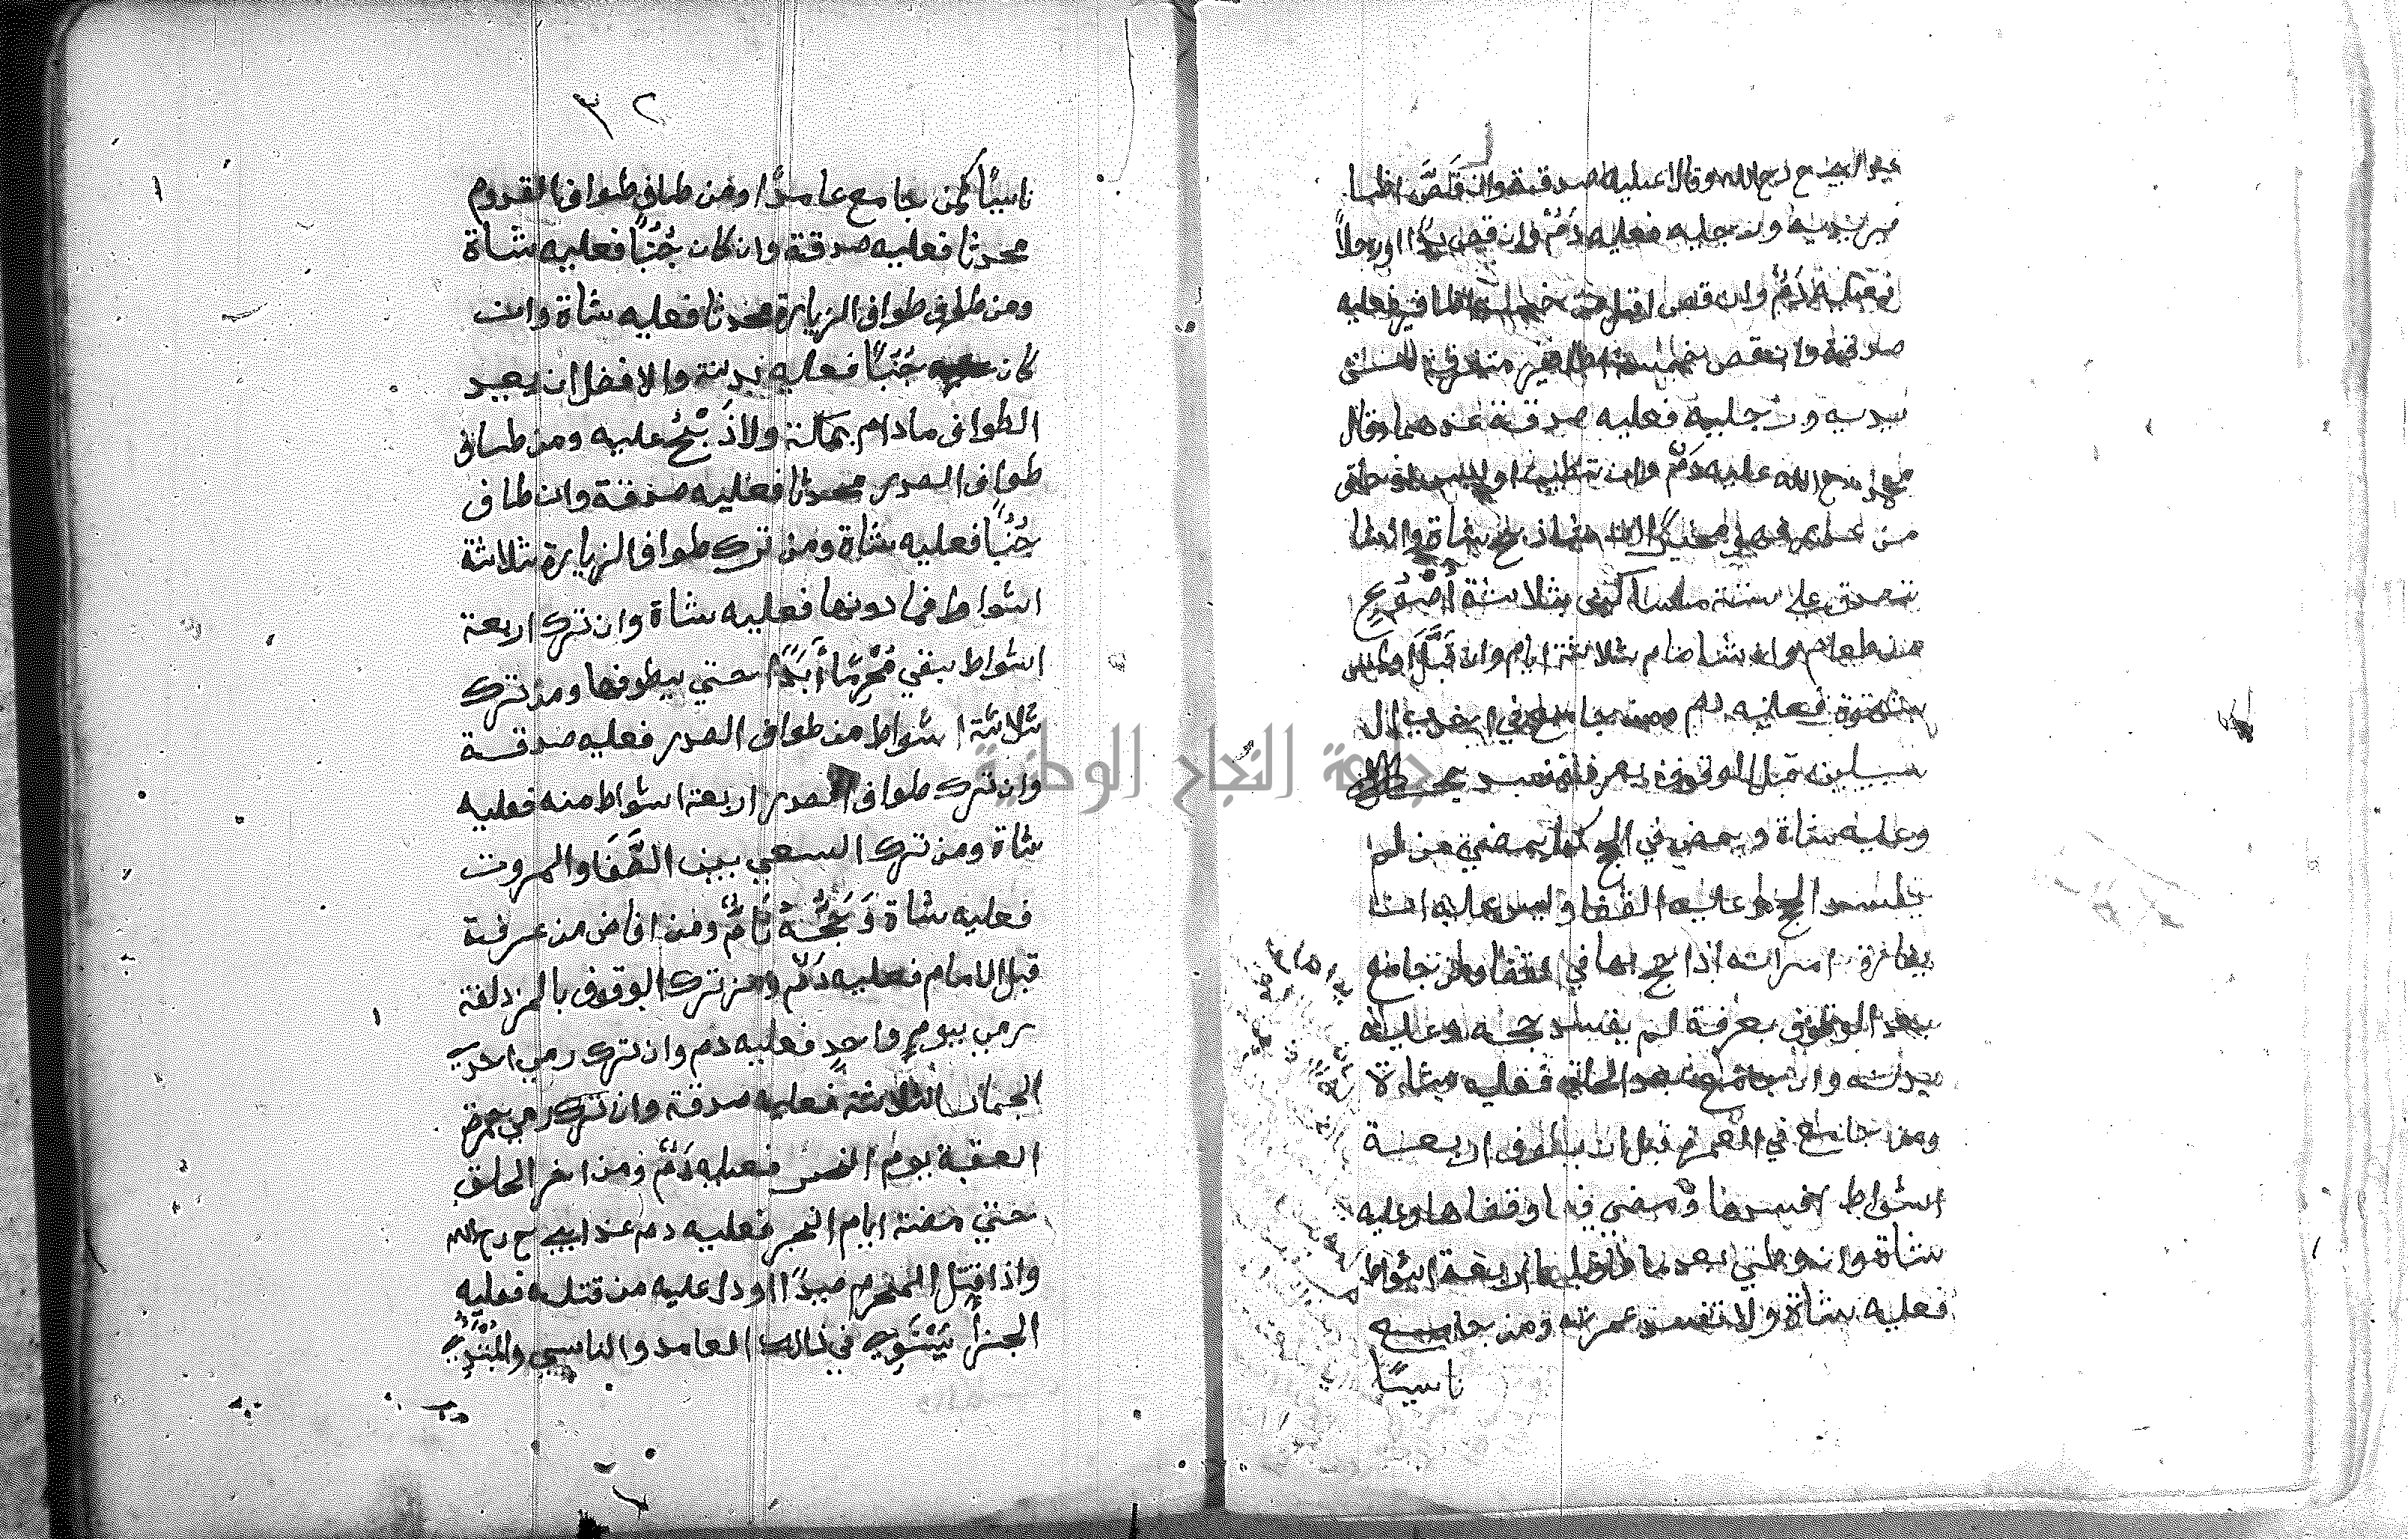 عند ابي ح رح الله وقالا عليه صدقة وان قَصَّ اظا
فير يديه ورجليه فعليه دَمٌ وان قص يدًا او رجلاً
فعليه دَمٌ وان قص اقل من خمسة اظافير فعليه
صدقة وان قص خمسة اظافير متفرقة من
يديه ورجليه فعليه صدقة عندهما وقال
محمد رح الله عليه دَمٌ وان تطيب او لبس او حلق
من عذر فهو مخير ان شا ذبح شاة وان شا
تصدق على ستة مساكين بثلاثة أَصْوُعٍ
من طعام وان شا صام ثلاثة ايام وان قَبَّلَ او لمس
بشهوة فعليه دم ومن جامع في احد
سبيلين قبل الوقوف بعرفة فسد حجه
وعليه شاة ويمضي في الحج كما يمضي من لم
يفسد الحج وعليه القضا وليس عليه ان
يفارق امراته اذا حج بها في القضا ومن جامع
بعد الوقوف بعرفة لم يفسد حجه وعليه
بدنة وان جامع بعد الحلق فعليه شاة
ومن جامع في العمرة قبل ان يطوف اربعة
اشواط افسدها ومضي فيها وقضاها وعليه
شاة وان وطئ بعد ما طاف لها اربعة اشواط
فعليه شاة ولا تفسد عمرته ومن جامع
ناسيًا
٣٢
ناسيًا كمن جامع عامدًا ومن طاف طواف القدوم
محدثا فعليه صدقة وان كان جُنُبًا فعليه شاة
ومن طاف طواف الزيارة محدثا فعليه شاة وان
كان جُنُبًا فعليه بدنة والافضل ان يعيد
الطواف مادام بمكة ولا ذَبْحُ عليه ومن طاف
طواف الصدر محدثا فعليه صدقة وان طاف
جُنُبًا فعليه شاة ومن ترك طواف الزيارة ثلاثة
اشواط فما دونها فعليه شاة وان ترك اربعة
اشواط بقي مُحْرِمًا أَبَدًا حتي يطوفها ومن ترك
ثلاثة اشواط من طواف الصدر فعليه صدقة
وان ترك طواف الصدر اربعة اشواط منه فعليه
شاة ومن ترك السعي بين الصَّفَا والمروت
فعليه شاة وَحَجُّهُ تَامٌّ ومن افاض من عرفة
قبل الامام فعليه دَمٌ ومن ترك الوقوف بالمزدلفة
رمي يوم واحدٍ فعليه دم وان ترك رمي احدي
الجمار الثلاثة فعليه صدقة وان ترك رمي جمرة
العقبة يوم النحر فعليه دَمٌ ومن اخر الحلق
حتي مضة ايام النحر فعليه دم عند ابي ح رح الله
واذا قتل المحرم صيدًا او دل عليه من قتله فعليه
الجزأ يَسْتَوِي في ذالك العامد والناسي والمُبْتَدِيُ